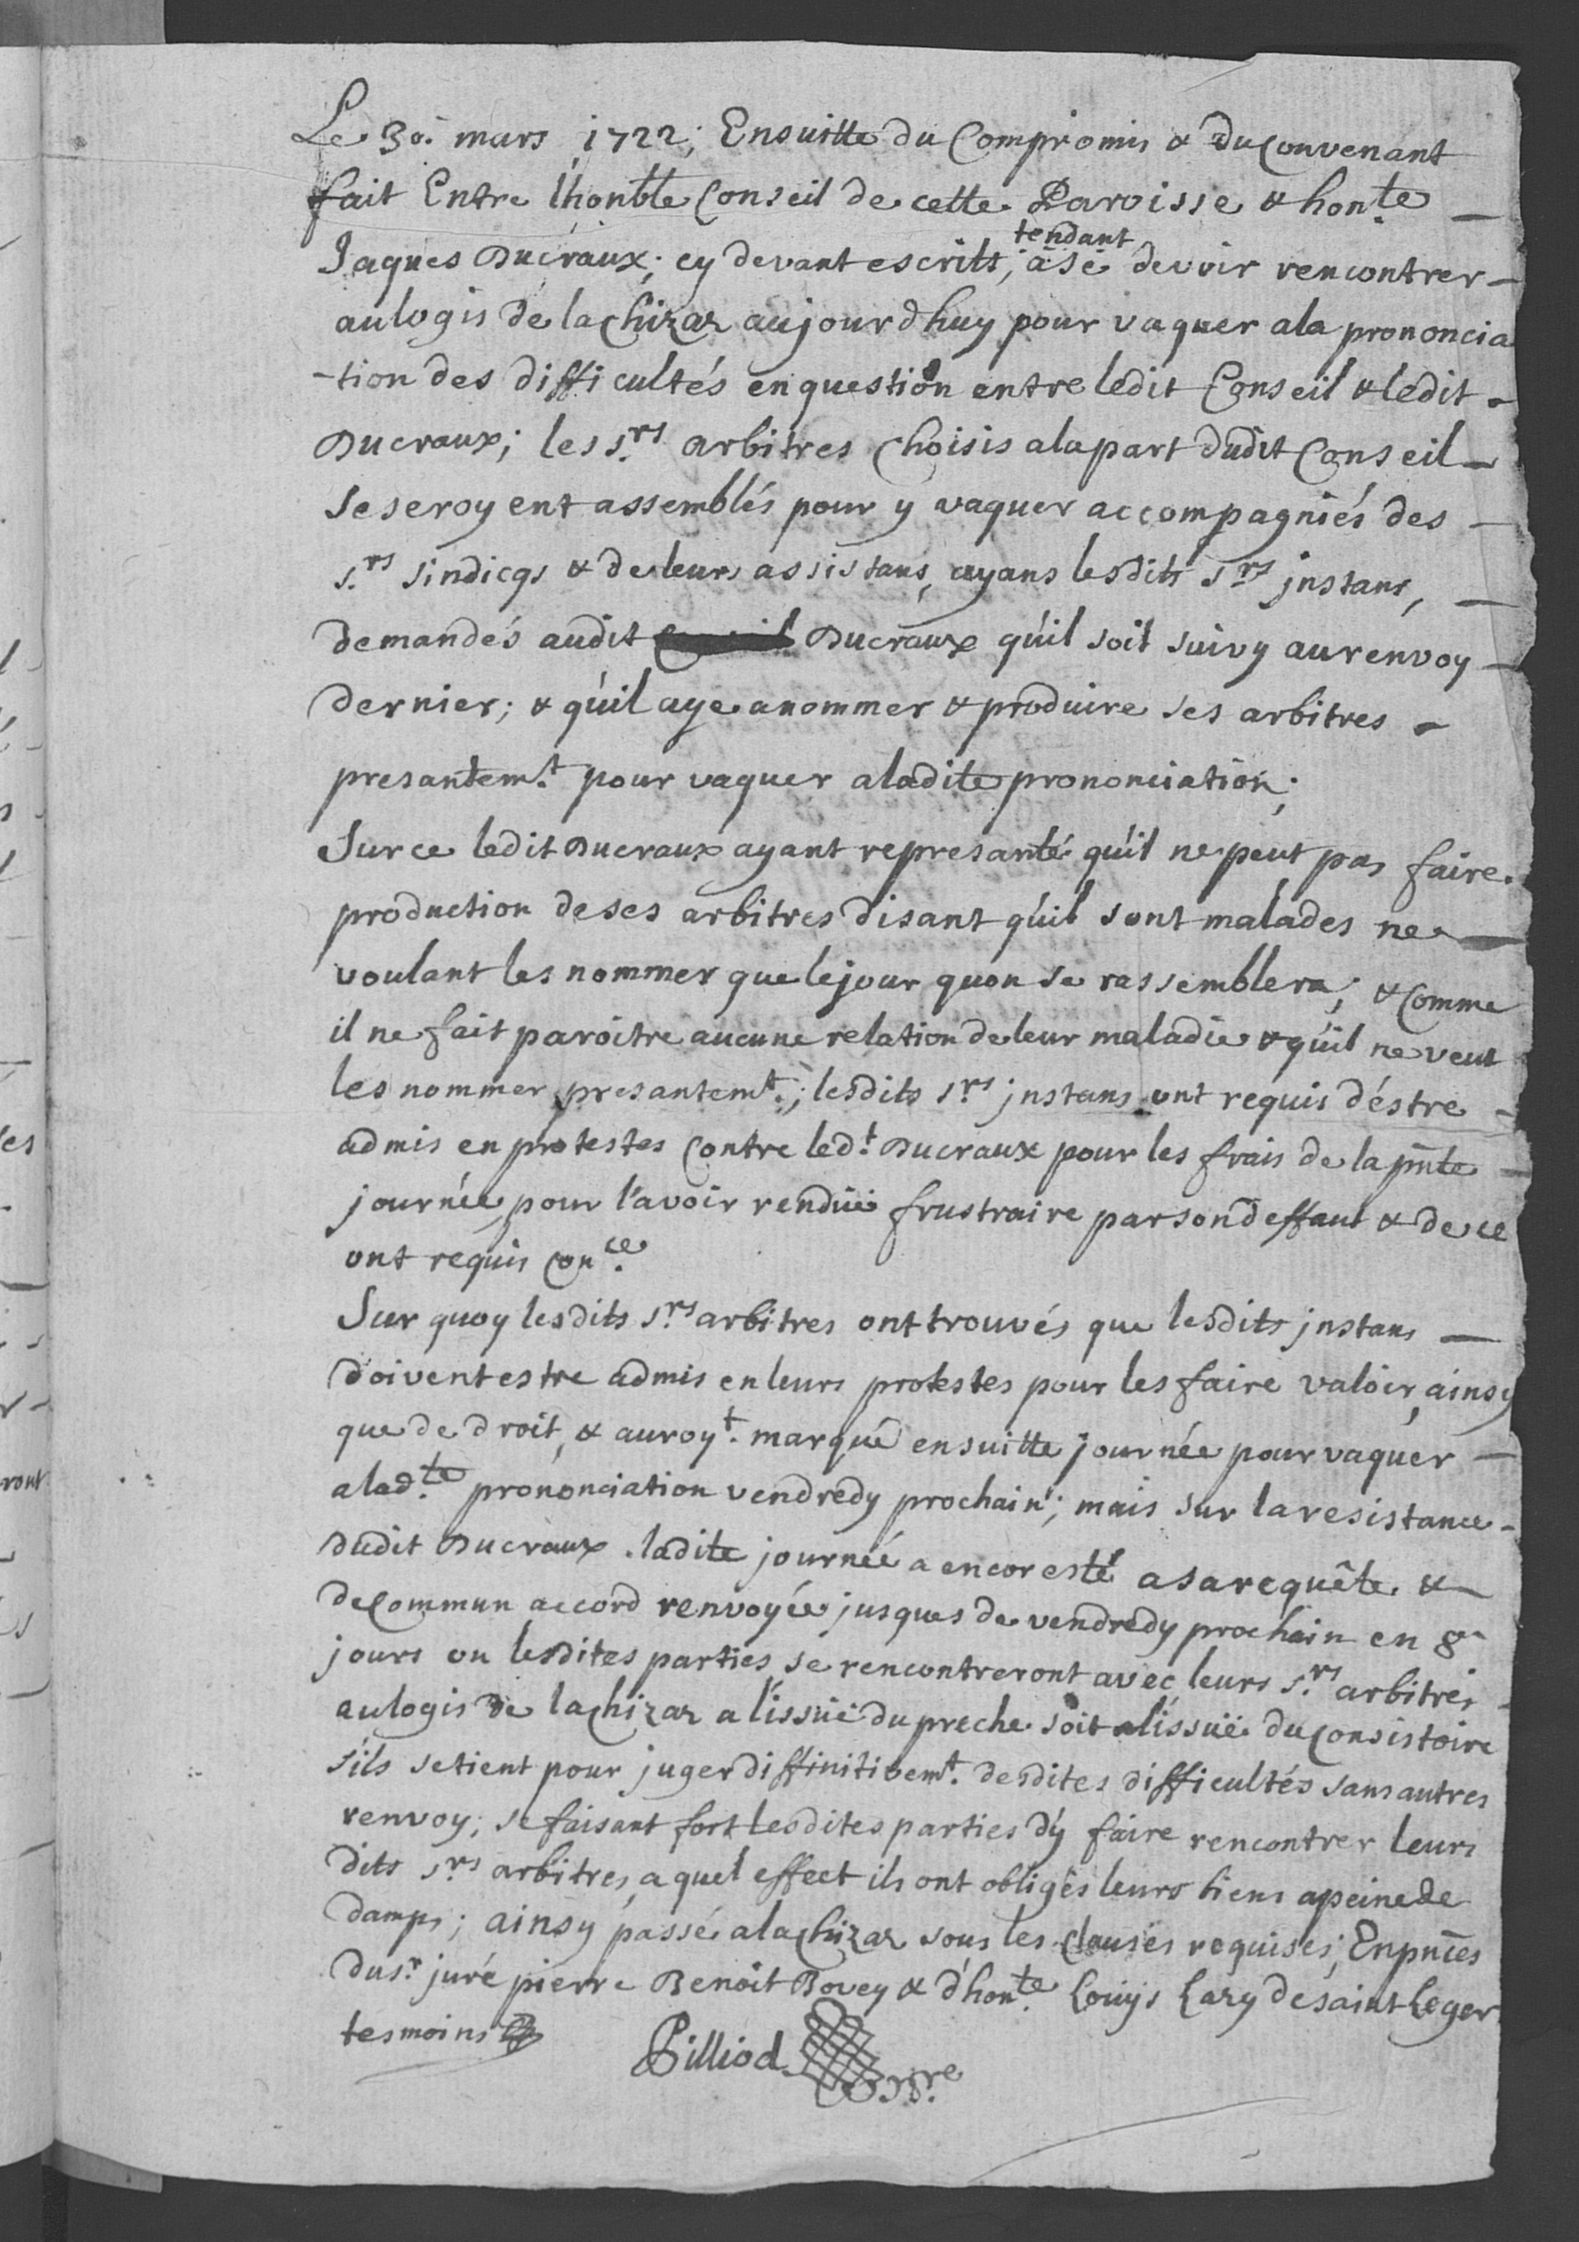 Le 30. mars 1722; Ensuitte du Compromis & du Convenant
fait Entre lhonble Conseil de cette Paroisse & hon.te
Jaques Ducraux; cy devant escrits, tendant a se devoir rencontrer
au logis de la Chizaz aujourdhuy pour vaquer a la prononcia
-tion des difficultés en question entre ledit Conseil & ledit
Ducraux; les s.rs arbitres Choisis a la part dudit Conseil
se seroyent assemblés pour y vaquer accompagniés des
s.rs sindicqs & de leurs assistans, ayans lesdits s.rs jnstans,
demandés audit Ducraux qu'il soit suivy au renvoy
dernier; & qu'il aye a nommer & produire ses arbitres
presantem.t pour vaquer a ladite prononciation;
Sur ce ledit Ducraux ayant represanté qu'il ne peut pas faire
production de ses arbitres disant qu'il sont malades ne
voulant les nommer que le jour quon se rassemblera; & Comme
il ne fait paroitre aucune relation de leur maladie & qu'il ne veut
les nommer presantem.t; lesdits s.rs jnstans ont requis d'éstre
admis en protestes Contre led.t Ducraux pour les frais de la pnte
journée, pour l'avoir rendüe frustraire par son deffaut & de ce
ont requis Con.ce
Sur quoy lesdits s.rs arbitres ont trouvés que lesdits jnstans
doivent estre admis en leurs protestes pour les faire valoir, ainsy
que de droit, & auroy.t marqué ensuitte journée pour vaquer
a lad.te prononciation vendredy prochain; mais sur la resistance
dudit Ducraux ladite journée a encor esté a sa requête &
de Commun accord renvoyée jusques de vendredy prochain en 8
jours ou lesdites parties se rencontreront avec leurs s.rs arbitres
au logis de la Chizaz a l'issüe du preche soit a l'issüe du Consistoire
s'ils se tient pour juger diffinitivem.t desdites difficultés sans autres
renvoy; se faisant fort lesdites parties d'y faire rencontrer leurs
dits s.rs arbitres, a quel effect ils ont obligés leurs biens a peine de
damps; ainsy passé a la Chizaz sous les Clauses requises; En pnces
du s.r juré pierre Benoit Bovey & d'hon.te Louys Lazy de saint Leger
tesmoins
Pilliod